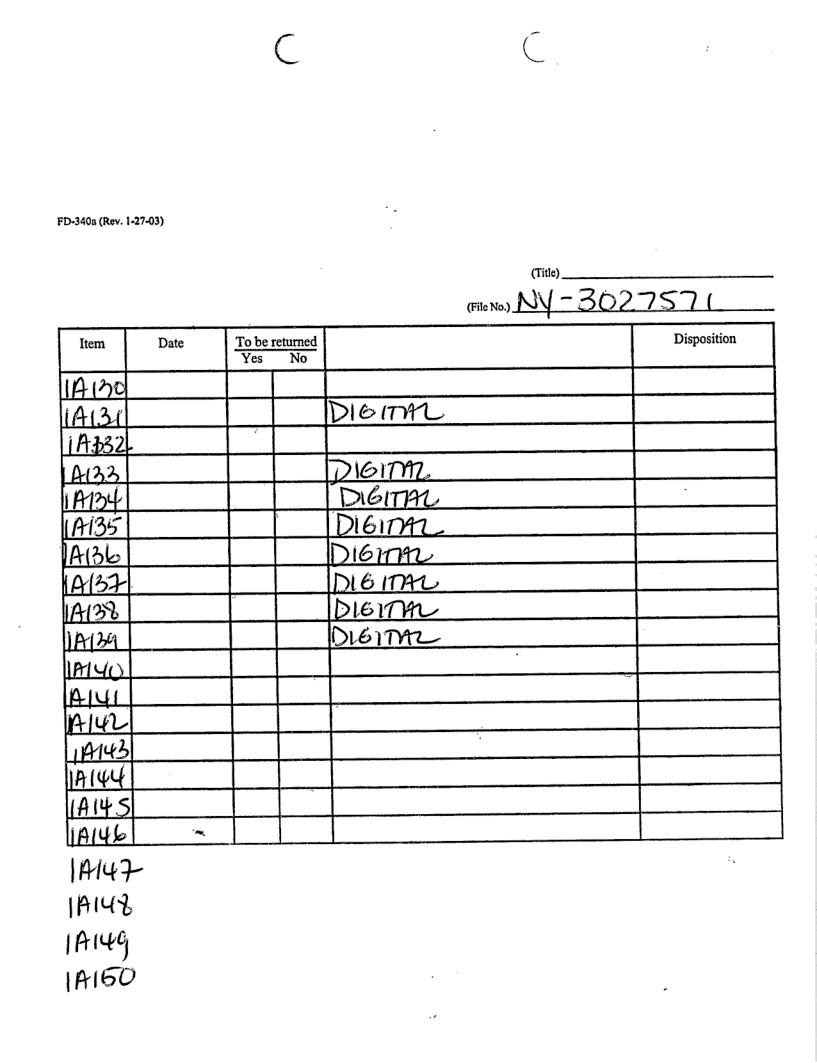 C C
FD-340a (Rev. 1-27-03)
(Title)
(File No.) NY-3027571
Item Date To be returned Disposition
Yes No
1A130
1A131 DIGITAL
1A132
1A133 DIGITAL
1A134 DIGITAL
1A135 DIGITAL
1A136 DIGITAL
1A137 DIGITAL
1A138 DIGITAL
1A139 DIGITAL
1A140
1A141
1A142
1A143
1A144
1A145
1A146
1A147
1A148
1A149
1A150